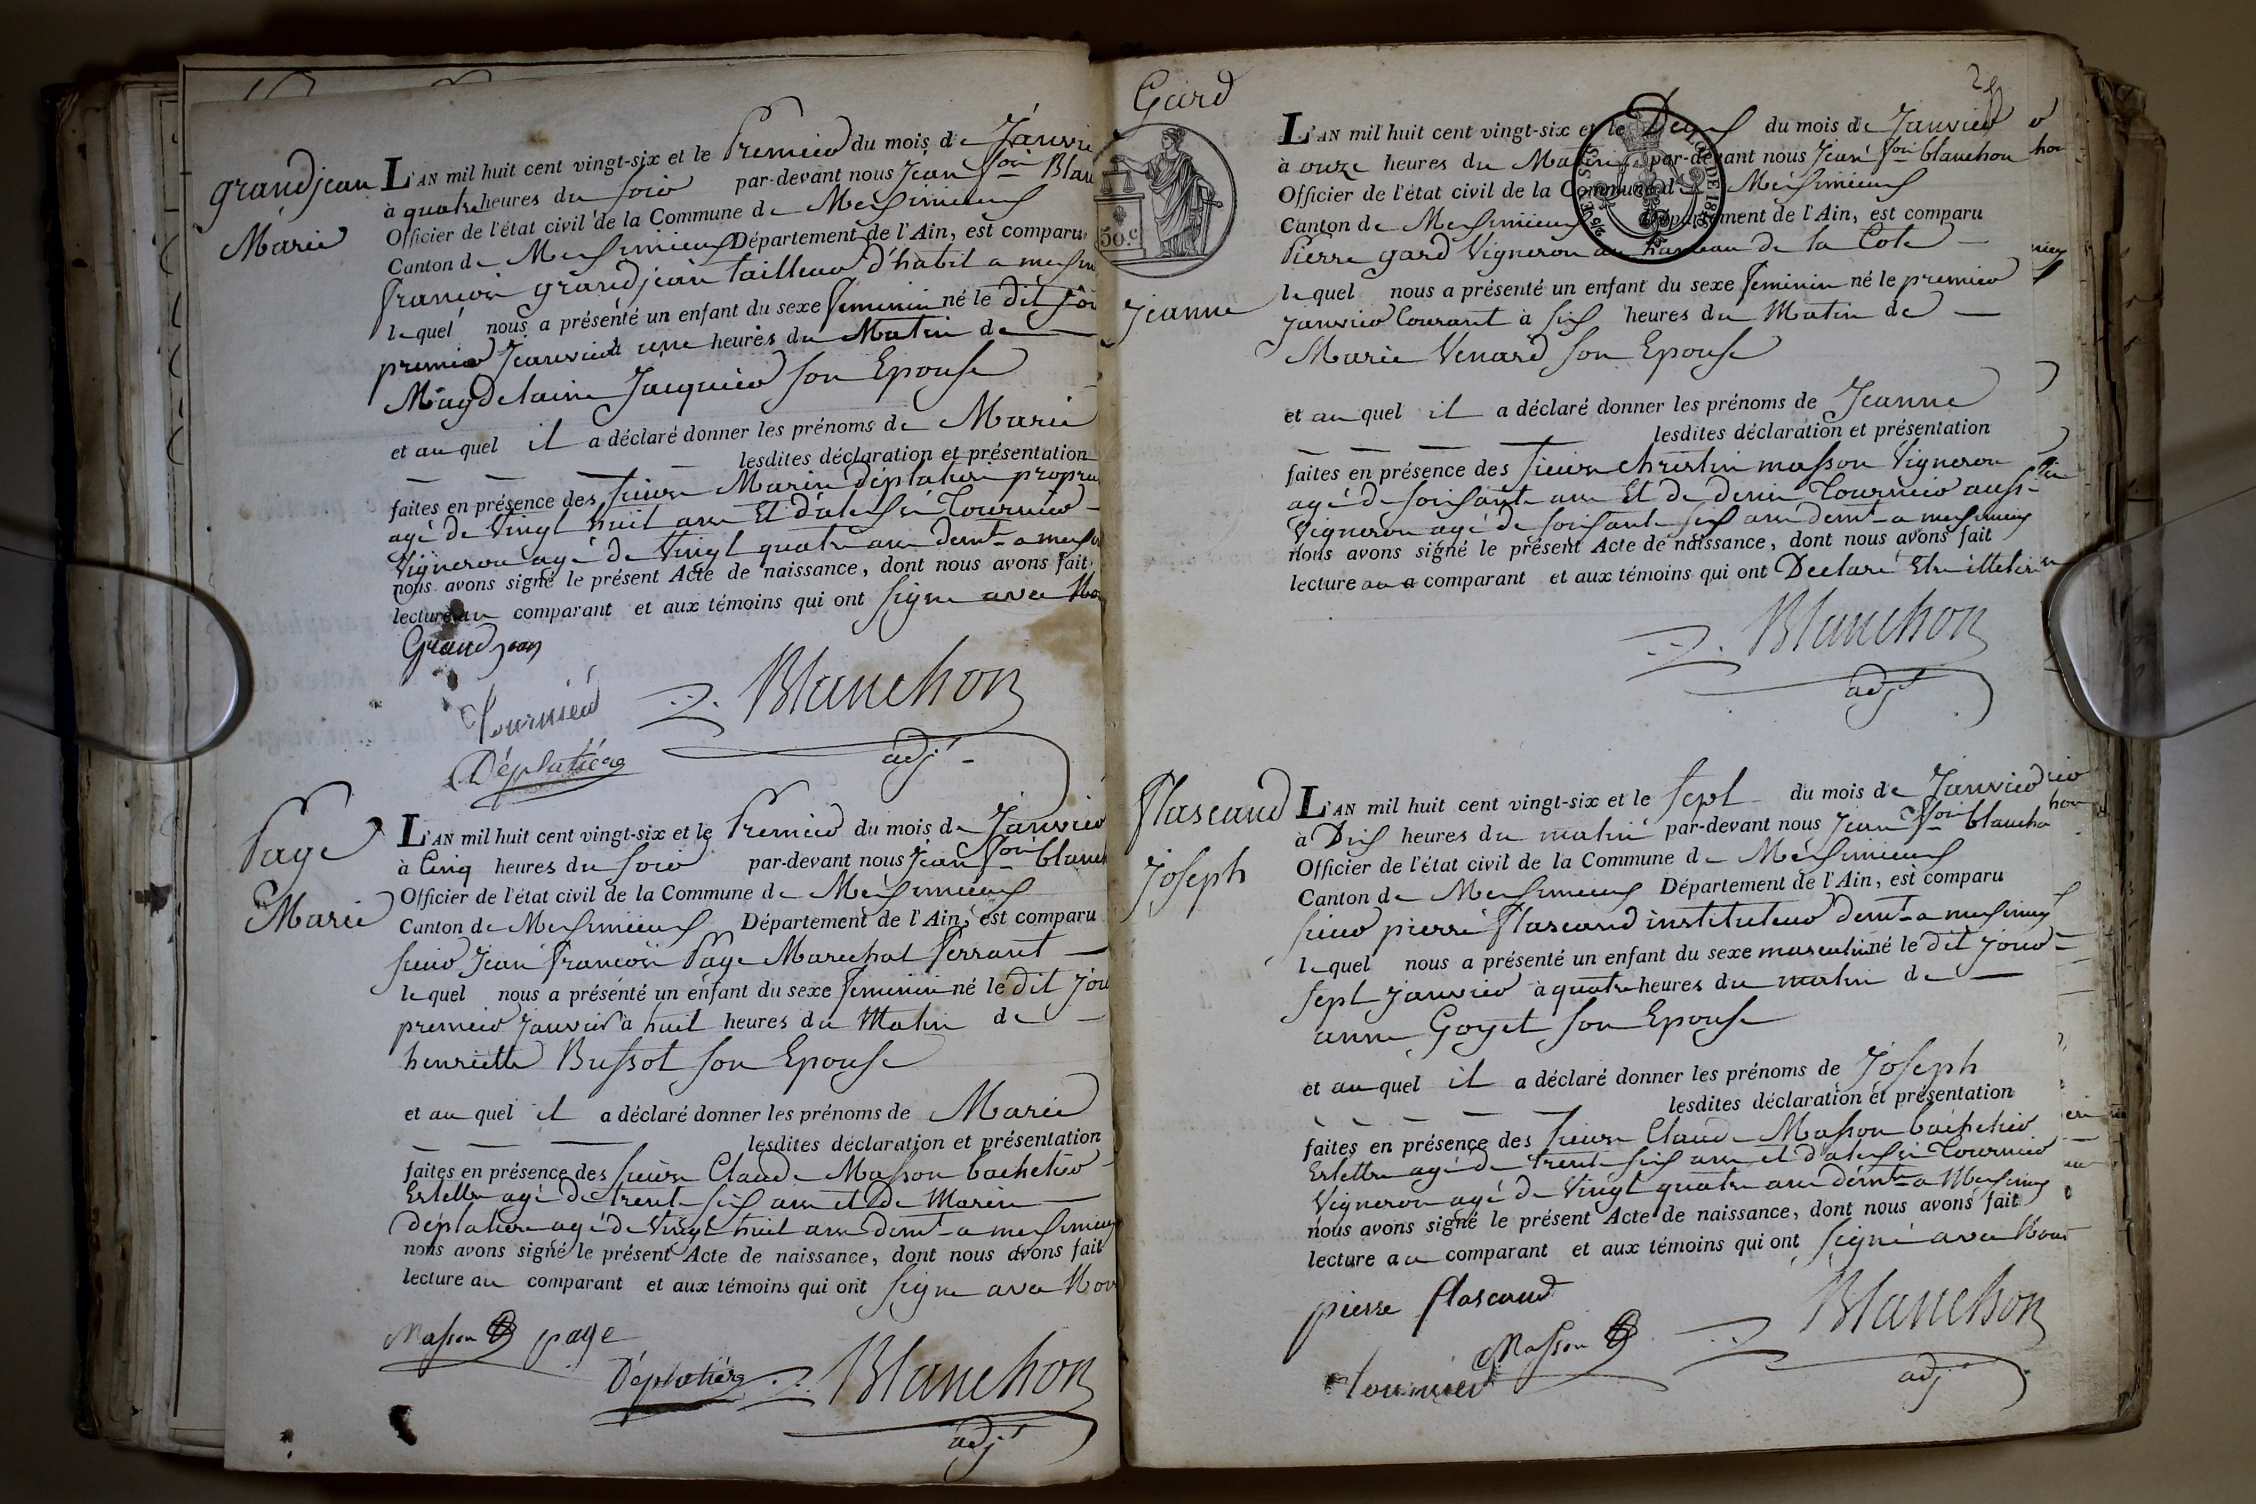 grandjean
Marie
L'AN mil huit cent vingt-six et le Premier du mois de Janvie
à quatre heures du soir par-devant nous Jean fois Blan
Officier de l'état civil de la Commune de Meximieux
Canton de Meximieux Département de l'Ain, est comparu
françois grandjean tailleur d'habit a mexim
lequel nous a présenté un enfant du sexe feminin né le dit jou
premier Janvier à une heures du Matin de
Magdelaine Jacquier son Epouse
et au quel il a déclaré donner les prénoms de Marie
lesdites déclaration et présentation
faites en présence des sieurs Marin déplatiere propri
agé de vingt huit ans Et d'alexis Tournier
Vigneron agé de Vingt quatre ans demt a mexi
nous avons signé le présent Acte de naissance, dont nous avons fait
lecture au comparant et aux témoins qui ont signé avec No
Grandjean
Tournier
Blanchon
Déplatière
adjt
Page
Marie
L'AN mil huit cent vingt-six et le Premier du mois de Janvier
à Cinq heures du soir par-devant nous Jean fois blanch
Officier de l'état civil de la Commune de Meximieux
Canton de Meximieux Département de l'Ain, est comparu
sieur Jean françois Page Marechal ferrant
lequel nous a présenté un enfant du sexe feminin né le dit jou
premier Janvier à huit heures du Matin de
henriette Bussot son Epouse
et au quel il a déclaré donner les prénoms de Marie
lesdites déclaration et présentation
faites en présence des sieurs Claude Masson bachelier
Eslettre agé de trente six ans et de Marin
déplatiere agé de Vingt huit ans demt a meximieux
nous avons signé le présent Acte de naissance, dont nous avons fait
lecture au comparant et aux témoins qui ont signé avec Nou
Masson page
Déplatière Blanchon
adjt
Gard
50.c
Jeanne
L'AN mil huit cent vingt-six et le Deux du mois de Janvier
à onze heures du Matin par-devant nous Jean fois blanchon
Officier de l'état civil de la Commune de Meximieux
Canton de Meximieux Département de l'Ain, est comparu
Pierre gard Vigneron au hameau de la Cote
lequel nous a présenté un enfant du sexe feminin né le premier
Janvier Courant à six heures du Matin de
Marie Venard son Epouse
et au quel il a déclaré donner les prénoms de Jeanne
lesdites déclaration et présentation
faites en présence des sieurs christin masson Vigneron
agé de soixante ans Et de denis Tournier aussi
Vigneron agé de soixante six ans demt a meximieux
nous avons signé le présent Acte de naissance, dont nous avons fait
lecture au comparant et aux témoins qui ont Declaré Etre illetré
Blanchon
adjt
Flascaud
Joseph
L'AN mil huit cent vingt-six et le sept du mois de Janvier
à Dix heures du matin par-devant nous Jean fois blancho
Officier de l'état civil de la Commune de Meximieux
Canton de Meximieux Département de l'Ain, est comparu
sieur pierre flascaud instituteur demt a meximieux
lequel nous a présenté un enfant du sexe masculin né le dit jour
sept janvier à quatre heures du matin de
anne Goyet son Epouse
et au quel il a déclaré donner les prénoms de Joseph
lesdites déclaration et présentation
faites en présence des sieurs Claude Masson bachelier
Eslettre agé de trente six ans et d'alexis Tournier
Vigneron agé de Vingt quatre ans demt a Meximieux
nous avons signé le présent Acte de naissance, dont nous avons fait
lecture au comparant et aux témoins qui ont signé avec Nous
pierre flascaud
Blanchon
Masson
tournier
adjt